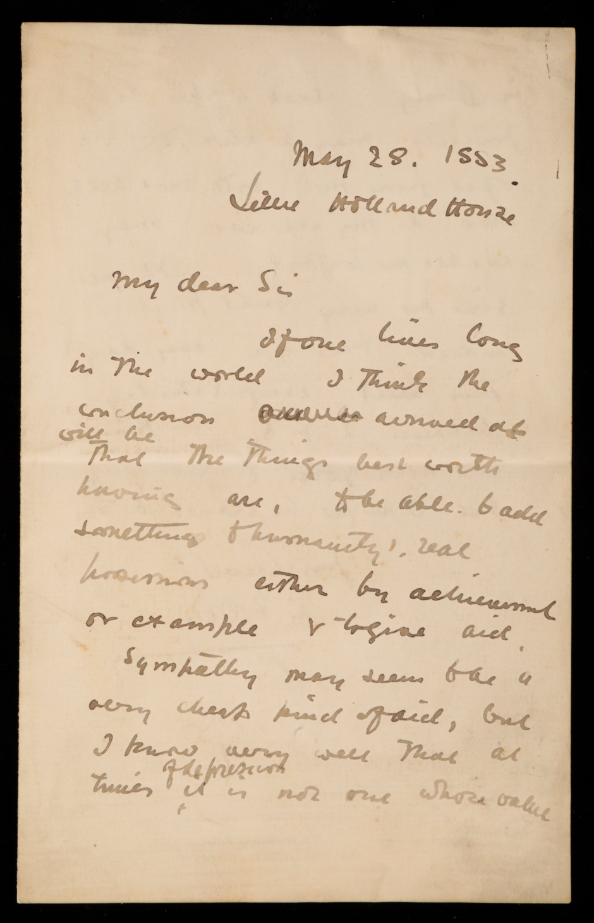 May 28. 1883.
Little Holland House
My dear Sir
If one lives long
in the world I think the
conclusion arrived at
will be
that the things best worth
having are, to be able to add
something to humanity's real
possessions either by achievement
or example & to give aid.
Sympathy may seem to be a
very cheap kind of aid, but
I know very well that at
of depression
times it is not one whose value